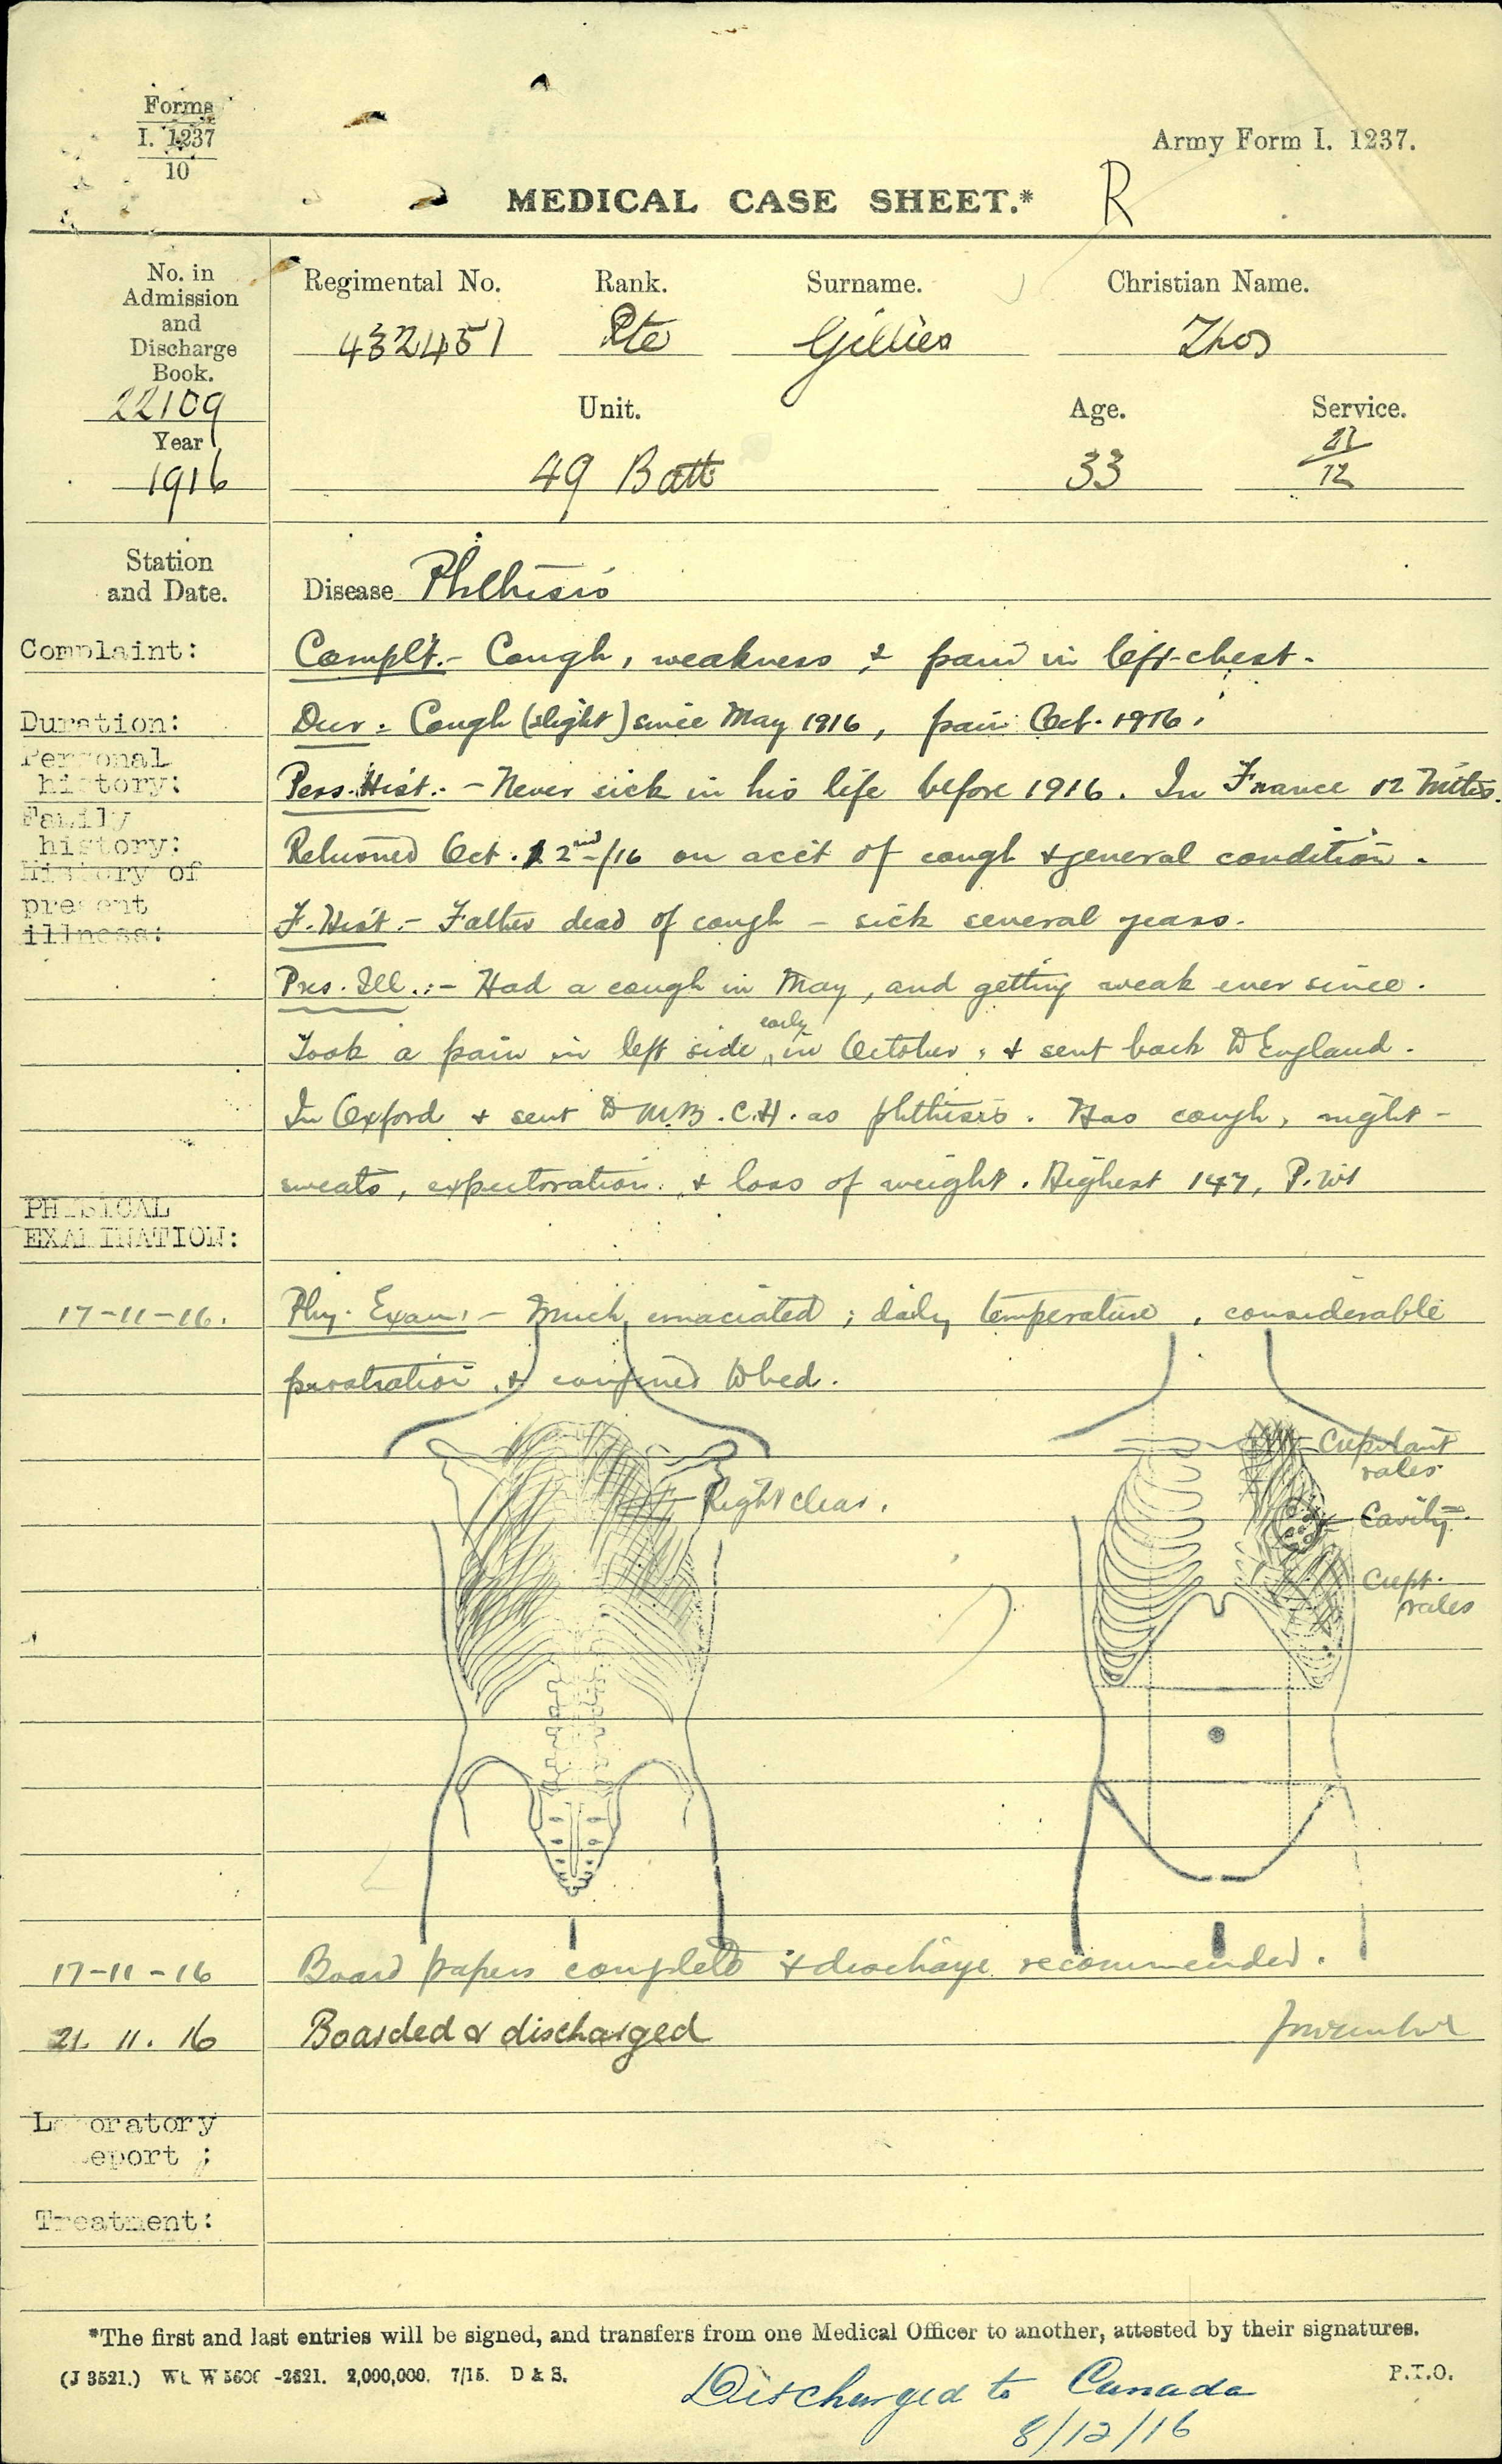 Forms
I. 1237
10
Army Form I. 1237.
MEDICAL CASE SHEET.*
R
No. in
Admission
and
Discharge
Book.
22109
Year
1916
Regimental No. Rank. Surname. Christian Name.
432451 Pte Gillies Thos
Unit. Age. Service.
49 Batt 33
12
Station
and Date.
Disease Phthisis
Complaint:
Complt.- Cough, weakness & pain in left chest.
Duration:
Dur: Cough (slight) since May 1916, pain Oct. 1916.
Personal
history:
Pers. Hist.- Never sick in his life before 1916. In France 12 mths.
Family
history:
Returned Oct. 2nd/16 on acct of cough & general condition.
History of
present
illness:
F. Hist.- Father dead of cough - sick several years.
Pres. Ill.:- Had a cough in May, and getting weak ever since.
Took a pain in left side early in October, & sent back to England.
In Oxford & sent to M.B.C.H. as phthisis. Has cough, night-
sweats, expectoration & loss of weight. Highest 147, P. Wt
PHYSICAL
EXAMINATION:
17-11-16. Phy. Exam:- Much emaciated; daily temperature, considerable
prostration, & confined to bed.
Crepitant
rales
Right clear.
Cavity
Crept.
rales
17-11-16 Board papers completed & discharge recommended.
21. 11. 16 Boarded & discharged
Laboratory
Report ;
Treatment:
*The first and last entries will be signed, and transfers from one Medical Officer to another, attested by their signatures.
(J 3521.) Wt. W 5606 -2621. 2,000,000. 7/15. D & S. P.T.O.
Discharged to Canada
8/12/16